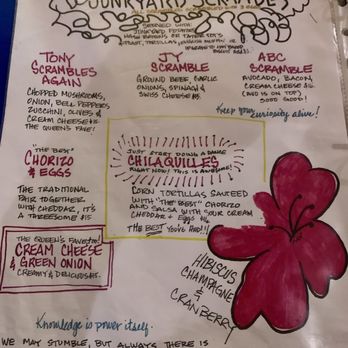 JUNKYARD SCRAMBLES
TONY
SCRAMBLES
AGAIN
CHOPPED MUSHROOMS,
ONION, BELL PEPPERS
ZUCCHINI, OLIVES &
CREAM CHEESE
THE QUEEN'S FAVE!
JT'S
SCRAMBLE
GROUND BEEF, GARLIC
ONIONS, SPINACH &
SWISS CHEESE
ABC
SCRAMBLE
AVOCADO, BACON,
CREAM CHEESE
(AND IS ON TOP)
SOOO GOOD!
Keep your curiosity alive!
"THE BEST"
CHORIZO
& EGGS
THE TRADITIONAL
PAIR TOGETHER
WITH CHEDDAR, IT'S
A THREESOME
JUST START DOING A DANCE
CHILAQUILLES
RIGHT NOW! THIS IS AWESOME!
CORN TORTILLAS SAUTEED
WITH "THE BEST" CHORIZO
AND SALSA WITH SOUR CREAM
CHEDDAR + EGGS
THE BEST YOU'VE HAD!
THE QUEEN'S FAVE
CREAM CHEESE
& GREEN ONION
CREAMY & DELICIOUS
HIBISCUS
CHAMPAGNE
&
CRANBERRY
Knowledge is power itself.
WE MAY STUMBLE, BUT ALWAYS THERE IS